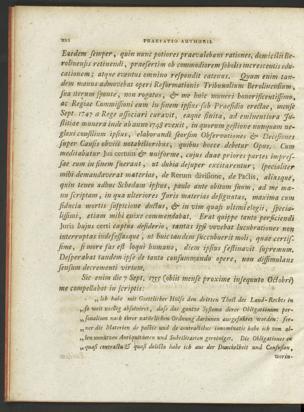 XII PRAEFATIO AUTHORIS
Eaedem semper, quin nunc potiores praevalebant rationes, domicilii Be-
rolinensis retinendi, praesertim ob commodiorem sobolis increscentis edu-
cationem; atque eventus omnino respondit cateruc. Quum enim tan-
dem manus admovebat operi Reformationis Tribunalium Berolinensium,
sea iterum sponte, non rogatus, & me huic muneri honorificentissimo,
ac Regiae Commissioni eum in finem ipsius sub Praesidio erectae, mense
Sept. 1747 a Rege associari curavit, eaque finita, ad eminentiora Ju-
stitiae munera inde ab anno 1748 evexit, in quorum gestione numquam ne-
glexi consilium ipsius, elaborandi seorsim Observationes & Decisiones
super Causis obviis notabilioribus, quibus hocce debetur Opus. Cum
meditabatur Jus certum & uniforme, cujus duae priores partes impres-
sae eum in finem fuerunt, ut dubia desuper excitarentur, specialiter
mihi demandaverat materias, de Rerum divisione, de Pactis, aliisque,
quin teneo adhuc Schedam ipsius, paulo ante obitum suum, ad me ma-
nu scriptam, in qua ulteriores Juris materias designatas, maxima cum
fiducia mortis suspicione dictus, & in vim quasi ultimi elogii, specia-
lissimi, etiam mihi enixe commendabat. Erat quippe tanto perficiendi
Juris hujus certi captus desiderio, tantis ipsi vovebat lucubrationes non
interruptas indefessasque, ut huic tandem succubuerit moli, quae certis-
sime, si more fas est loqui humano, diem ipsius festinavit supremum.
Desperabat tandem ipse de tanto consummando opere, non dissimulans
sensum decrementi virium.
Sic enim die 7 Sept. 1755 (obiit mense proxime insequuto Octobri)
me compellabat in scriptis:
„Ich habe mit Göttlicher Hülfe den dritten Theil des Land-Rechts in
„so weit völlig absolviret, dass das gantze Systema derer Obligationum per-
„sonalium nach ihrer natürlichen Ordnung darinnen ausgeführet worden: fer-
„ner die Materien de pactis und de contractibus innominatis habe ich von al-
„len unnützen Antiquitäten und Subtilitaeten gereiniget. Die Obligationes ex
„quasi contractu & quasi delicto habe ich aus der Dunckelheit und Confusion,
worin-